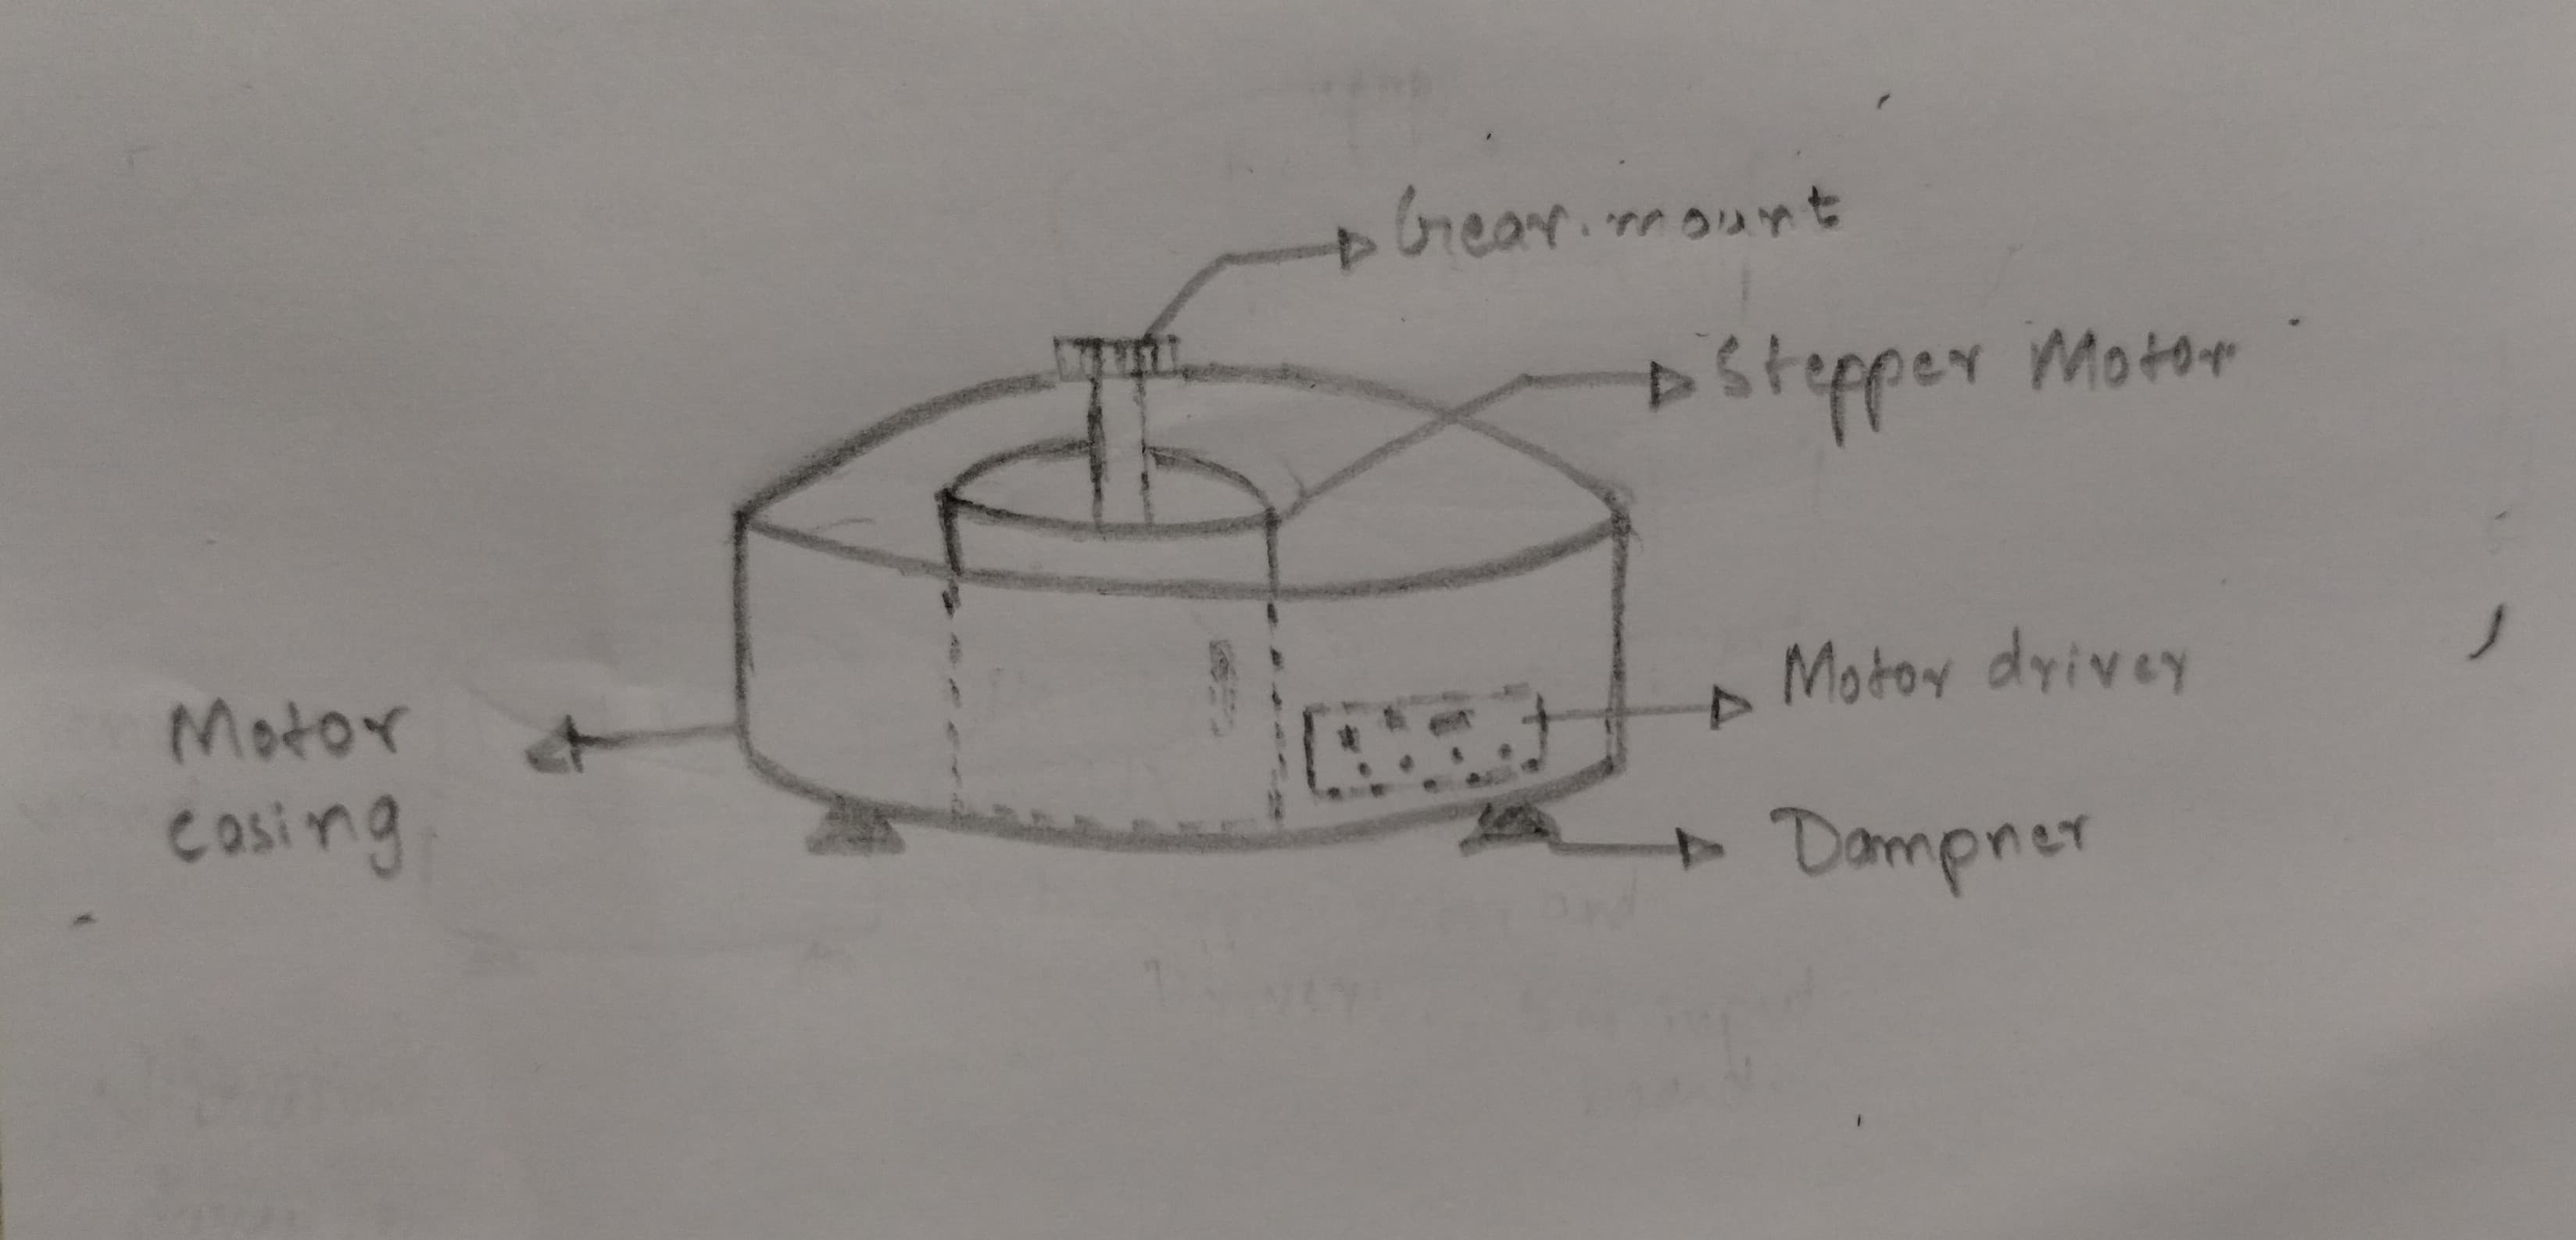 Gear.mount
Stepper Motor
Motor driver
Motor
casing
Dampner